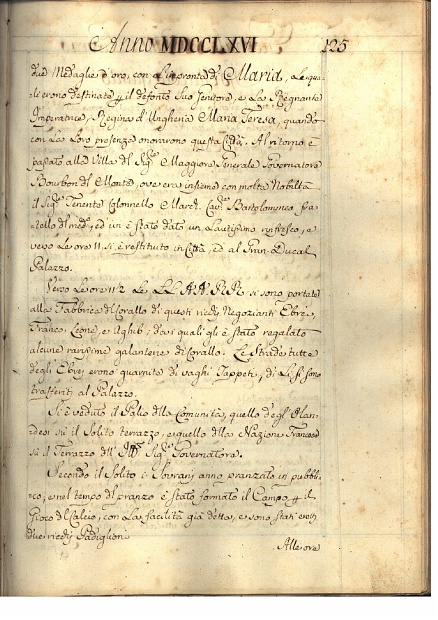 Anno MDCCLXVI 125
due Medaglie d'oro, con l'impronta di Maria, le qua-
li erono destinate p il defonto Suo Genitore, e La Regnante
Imperatrice, Regina d'Ungheria Maria Teresa, quando
con La Loro presenza onorarono questa Città. Al ritorno è
passato alla Villa del Sigre Maggiore Generale Governatore
Bourbon del Monte, ove era insieme con molta Nobiltà
il Sigre Tenente Colonnello March. Cavre Bartolommeo fra-
tello del medmo, ed ivi è stato dato un Lautissimo rinfresco, e
verso Le ore 11 si è restituito in Città, ed al Gran-Ducal
Palazzo.
Verso Le ore 11 1/2 Le LL AA. RR. si sono portate
alla Fabbrica di Corallo di questi ricchi Negozianti Ebrei,
Franco, Leone, e da quali gli è stato regalato
alcune rarissime galanterie di Corallo. Le Strade tutte
degli Ebrei erono guarnite di vaghi Tappeti, di Lì si sono
trasferiti al Palazzo.
Si è veduto il Palio della Comunità, quello degl'Olan-
desi sù il Solito terrazzo, e quello della Nazione Francese
sù il Terrazzo dell' Illmo Sigre Governatore.
Secondo il Solito i Sovrani anno pranzato in pubbli-
co, e nel tempo di pranzo è stato formato il Campo p il
Gioco del Calcio, con La facilità già detta, e sono stati eretti
due ricchi Padiglioni
Alle ore